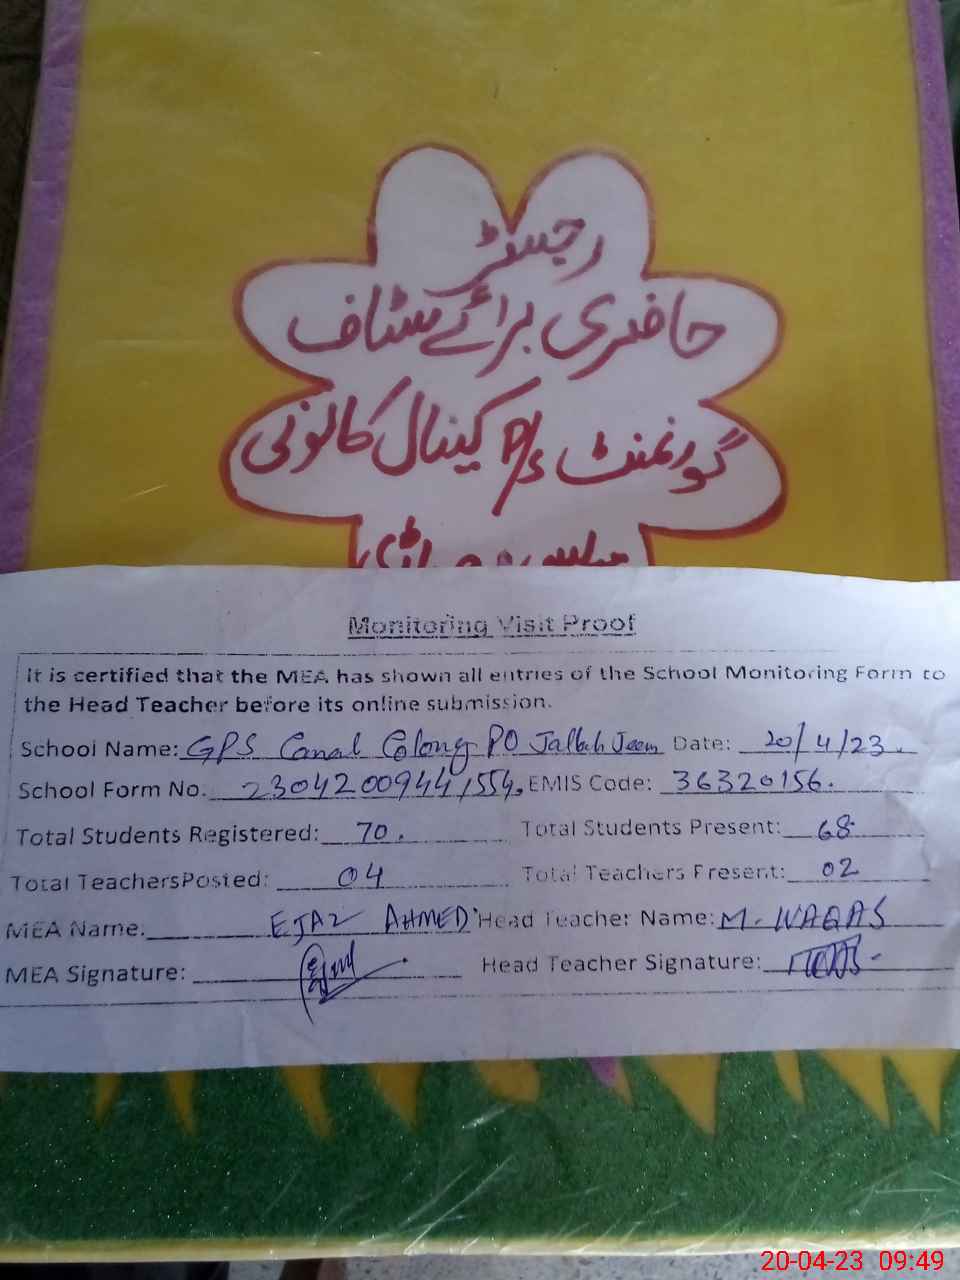 رجسٹر
حاضری برائے سٹاف
گورنمنٹ P/S کینال کالونی
Monitoring Visit Proof
It is certified that the MEA has shown all entries of the School Monitoring Form to
the Head Teacher before its online submission.
School Name: GPS Canal Colony PO Jallah Jeem Date: 20/4/23.
School Form No. 23042009441554. EMIS Code: 36320156.
Total Students Registered: 70. Total Students Present: 68
Total TeachersPosted: 04 Total Teachers Present: 02
MEA Name: EJAZ AHMED Head Teacher Name: M. WAQAS
MEA Signature: Head Teacher Signature:
20-04-23 09:49